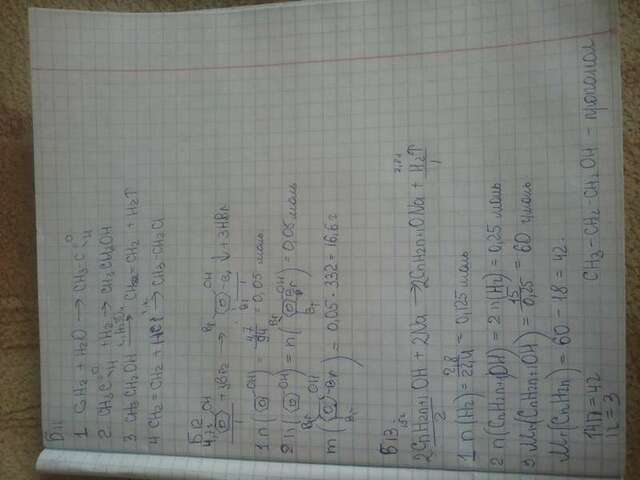 Б11
1. C2H2 + H2O → CH3-C=O H
2. CH3C=O H + H2 → CH3CH2OH
3. CH3CH2OH → CH2=CH2 + H2↑
4 CH2=CH2 + HCl → CH3-CH2Cl
Б12
4,7г OH + 3Br2 → Br OH Br Br ↓ + 3HBr
1 n(OH) = 4,7/94 = 0,05 моль
2 n(OH) = n(Br OH Br Br) = 0,05 моль
m(Br OH Br Br) = 0,05 · 332 = 16,6г
Б13.
2CnH2n+1OH + 2Na → 2CnH2n+1ONa + H2↑
2 1
1 n(H2) = 2,8/22,4 = 0,125 моль
2 n(CnH2n+1OH) = 2n(H2) = 0,25 моль
3. Mr(CnH2n+1OH) = 15/0,25 = 60 г/моль
Mr(CnH2n) = 60 - 18 = 42.
14n = 42
n = 3
CH3-CH2-CH2OH - пропанол